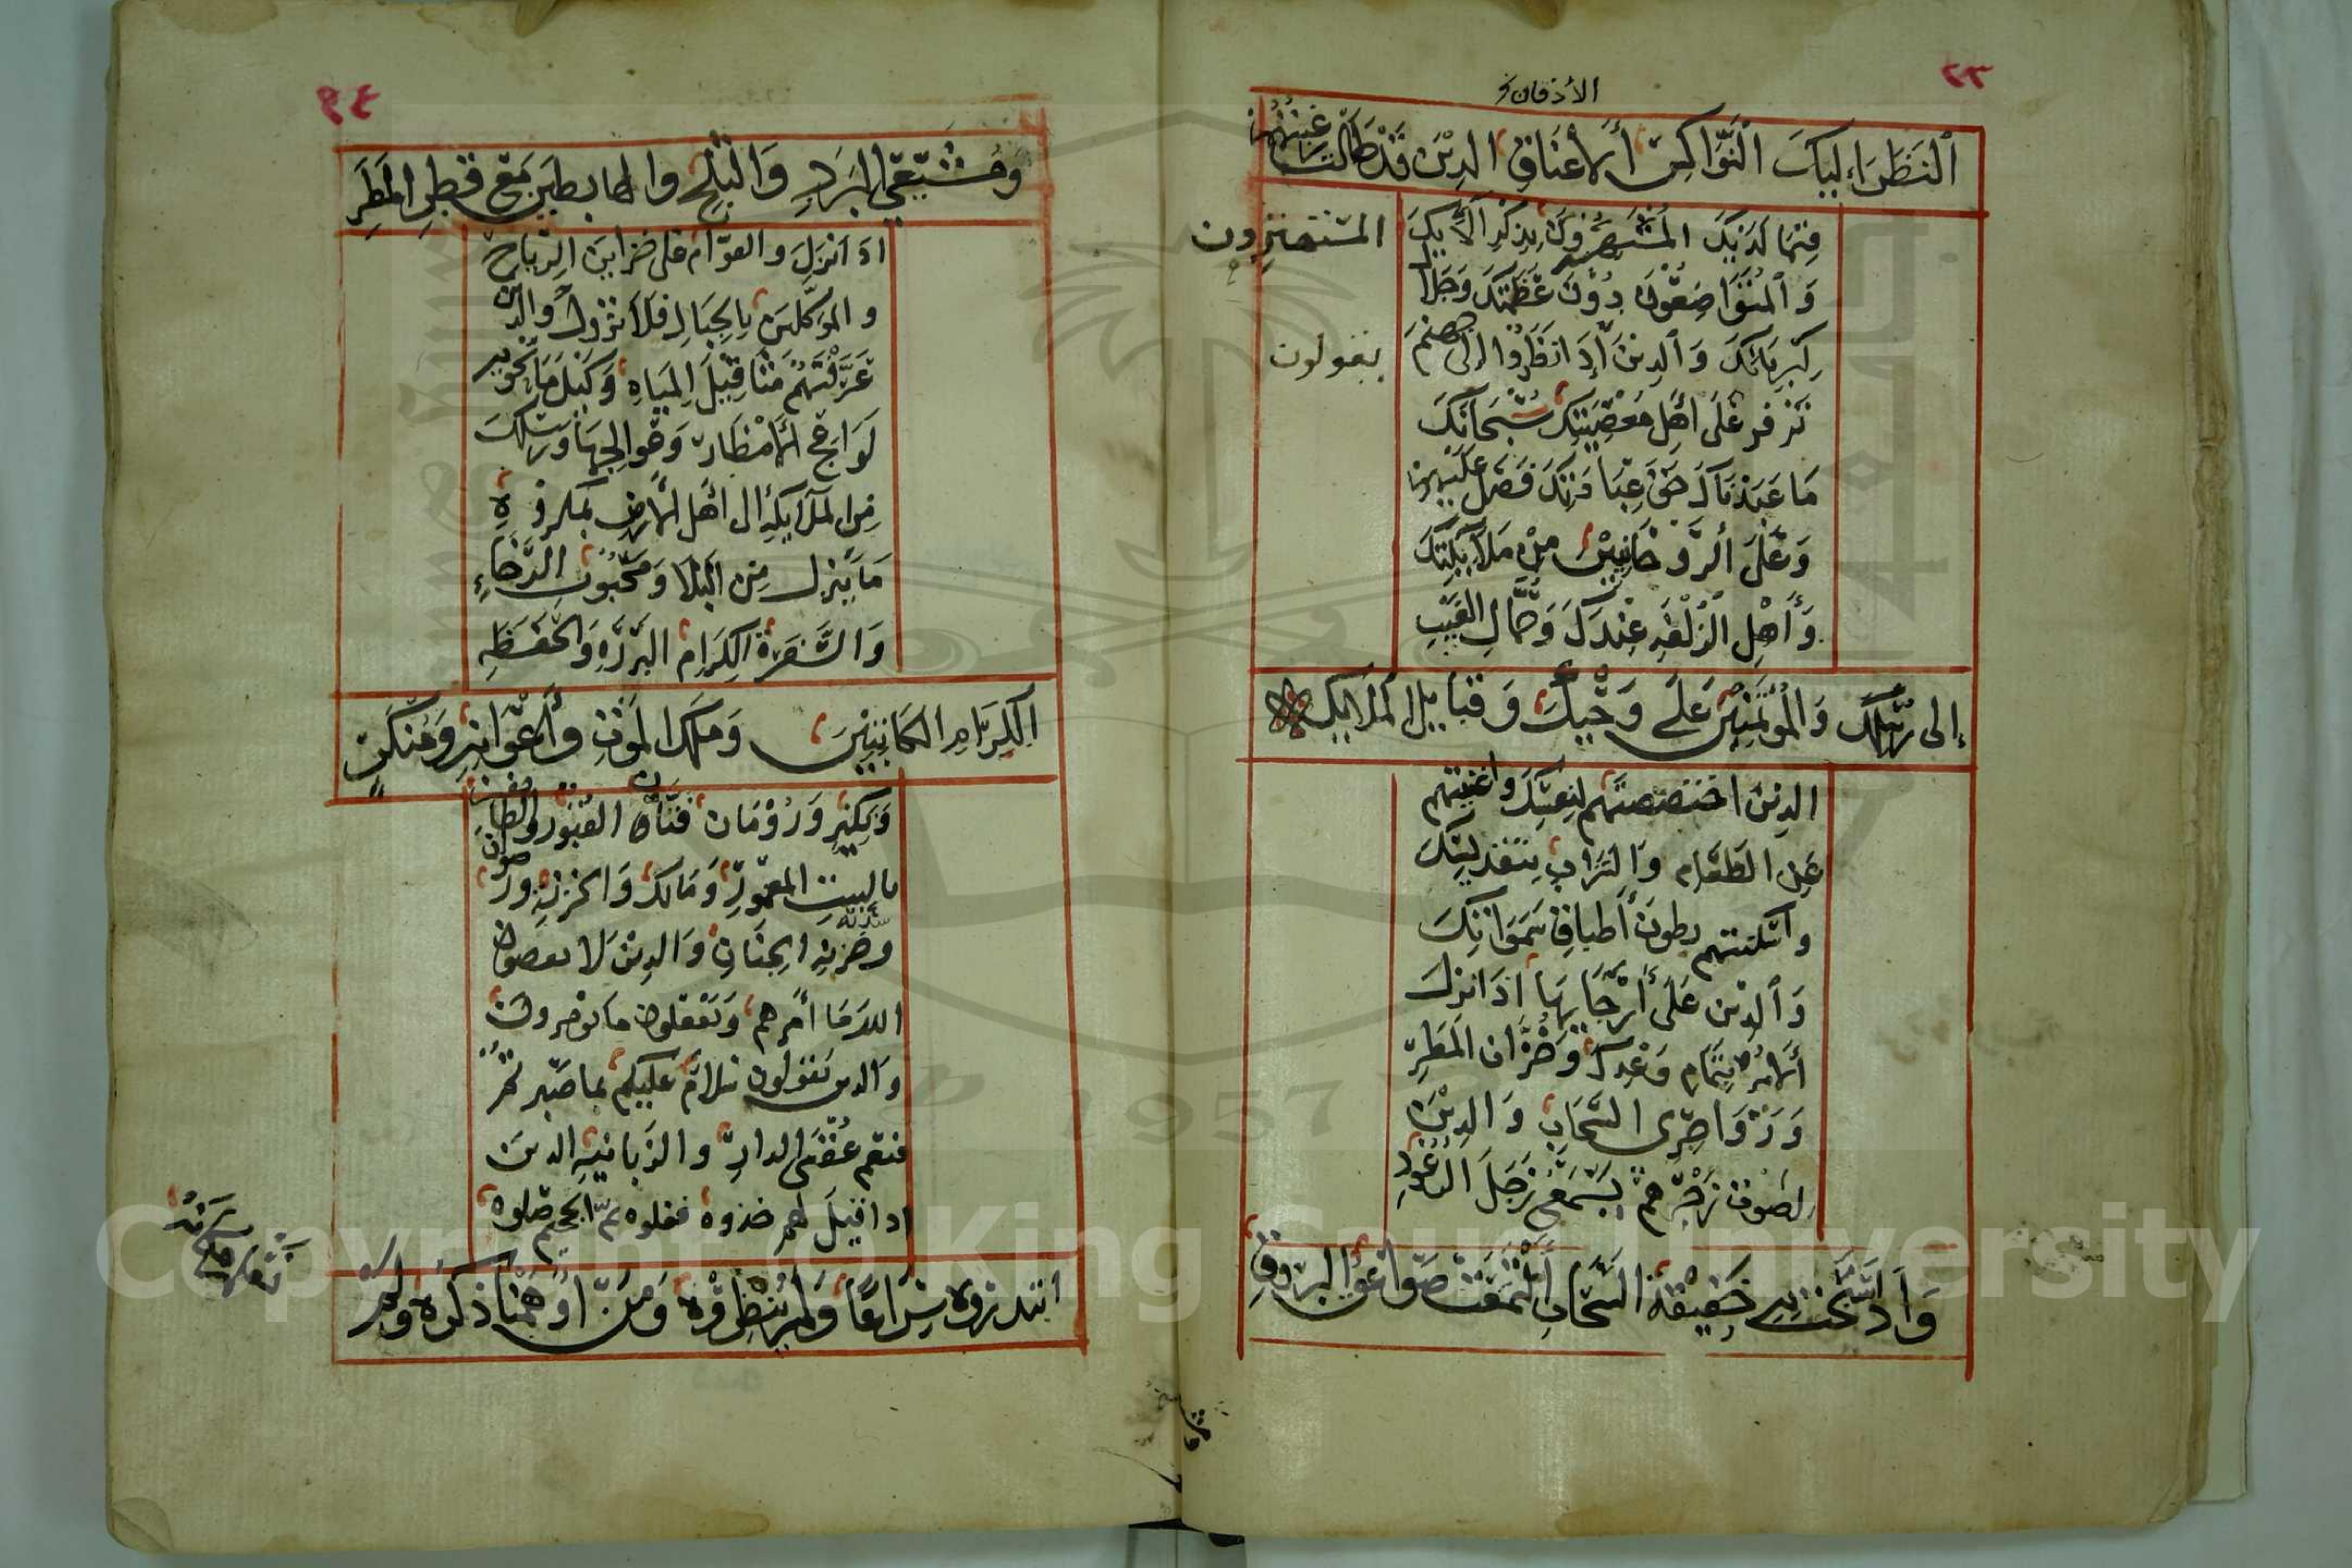 ٣٣
الأذقان خ
ٱلنَظَرَاء ليكَ ٱلنَّوَاكِسُ ٱلأعنَاقِ الذِينَ قَدْ طَالَت رغبتهم
فِيمَا لَدَيْكَ المُسْتَهْتِرُونَ بِذِكْرِ آلَآئِكَ
المستهترون
وَٱلمُتَوَاضِعُونَ دُونَ عَظَمَتِكَ وَجَلَالِ
كِبرِيَائِكَ وَٱلذِينَ إِذَا نَظَرُوا إِلى جهنم
يقولون
تَزْفر عَلَى اهَلِ مَعْصِيَتِكَ سُبْحَانَكَ
مَا عَبَدْنَاكَ حَقَّ عِبَادَتِكَ فَصَلِّ عَلَيْهِم
وَعَلَى ٱلرَّوحَانِيِّيْنَ مِنْ مَلآئِكَتِكَ
وَأَهْلِ ٱلزُلْفَهِ عِنْدَكَ وَحُمَّالِ الغَيْبِ
إلى رُسُلِكَ وَالْمُؤتَمَنِينَ عَلَى وَحْيِكَ وَقَبَايلِ المَلَايكه
الذِينَ اختَصَصتَهُم لِنَفسِكَ وَاغنيتهم
عَنِ الطَعَامِ وَالشَرَابِ بِتَقدِيسِكَ
واسْكنتهم بطونَ أطبَاقِ سَمَوَاتِكَ
وَٱلذِينَ عَلَى أَرْجَايهَا اذَا نزلَ
ٱلأمرُ بِتَمَامِ وَعْدِكَ وَخُزَّانِ المَطَرِ
وَزَوَاجِرِ السَّحَابِ وَالذِيْنَ
لصَوت زَجْرِهم يسْمَعُ زَجَلُ الرُعُودِ
وَاذ اسَبَحَت بِهِ حَفِيفَةُ السَّحَابِ ٱلْتَمَعَتْ صَوَاعِقُ البرُوقِ
٣٤
وَمُشَيِّعِي البَرَدِ وَالثَلجِ والهابطينَ مَعَ قَطرِ المَطَرِ
اذَ انزَلَ والقوّامِ عَلى خزاينِ الرِّيَاحِ
والمُوَكَّلينَ بِالجِبَالِ فَلَا تزُولُ والذين
عَرَّفْتَهُم مثَاقِيْلَ المِيَاهِ وَكَيْلَ مَا تحويه
لَوَاعج ٱلأمْطَارِ وَعَوالِجِهَا ورسلكَ
مِنَ المَلَآيكهِ الى اهَلِ الأرضِ بمكروهِ
مَا ينزِل مِن البَلَا وَمَحْبُوبِ الرَّخَاءِ
وَالسَّفَرَةِ الكِرَامِ البَرَرَهِ وَالحَفَظَهِ
الكِرَامِ الكَاتبِيْنَ وَمَلَكِ المَوْتِ وأَعْوَانِهِ وَمُنكَرٍ
وَنكيْرٍ وَرُوْمَان فَتَّانِ القبُورِ والطايفين
بالبيتِ المعمُورِ وَمَالك وَالخزنهِ ورضوان
سدنة
وخزنهِ الجِنَانِ وَالذِينَ لا يعصون
اللهَ مَا أمَرهم وَيَفْعَلون مَا يؤمرون
والذين يَقولون سَلامٌ عَليكم بما صبرتم
فنعم عُقبَى الدارِ والزَبانيهِ الذينَ
اذا قيلَ لهم خذوه فغلوه ثمّ الجحيم صلوه
ابتدروه سِرَاعًا وَلم يُنظِرُوه وَمَن اوهَمْنَا ذكره ولم